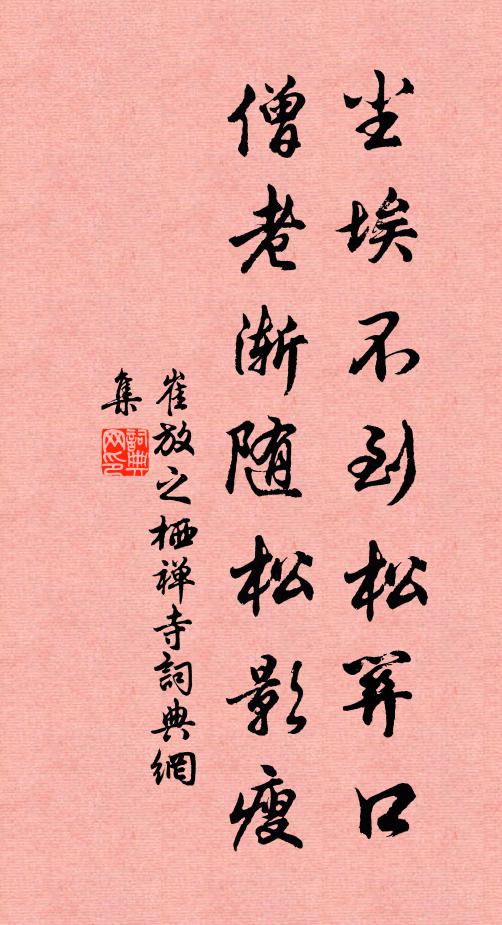 尘埃不到松口
僧老渐随松影瘦
崔放之栖禅寺詞典網
集
詞典
网印